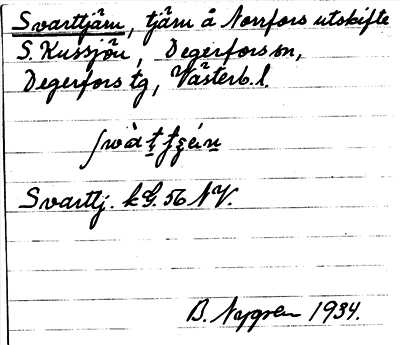 Svarttjärn, tjärn å Norrfors utskifte
S. Kussjön, Degerfors sn,
Degerfors tg, Västerb. l.
Svarttj. k G. 56 NV.
B. Nygren 1934.